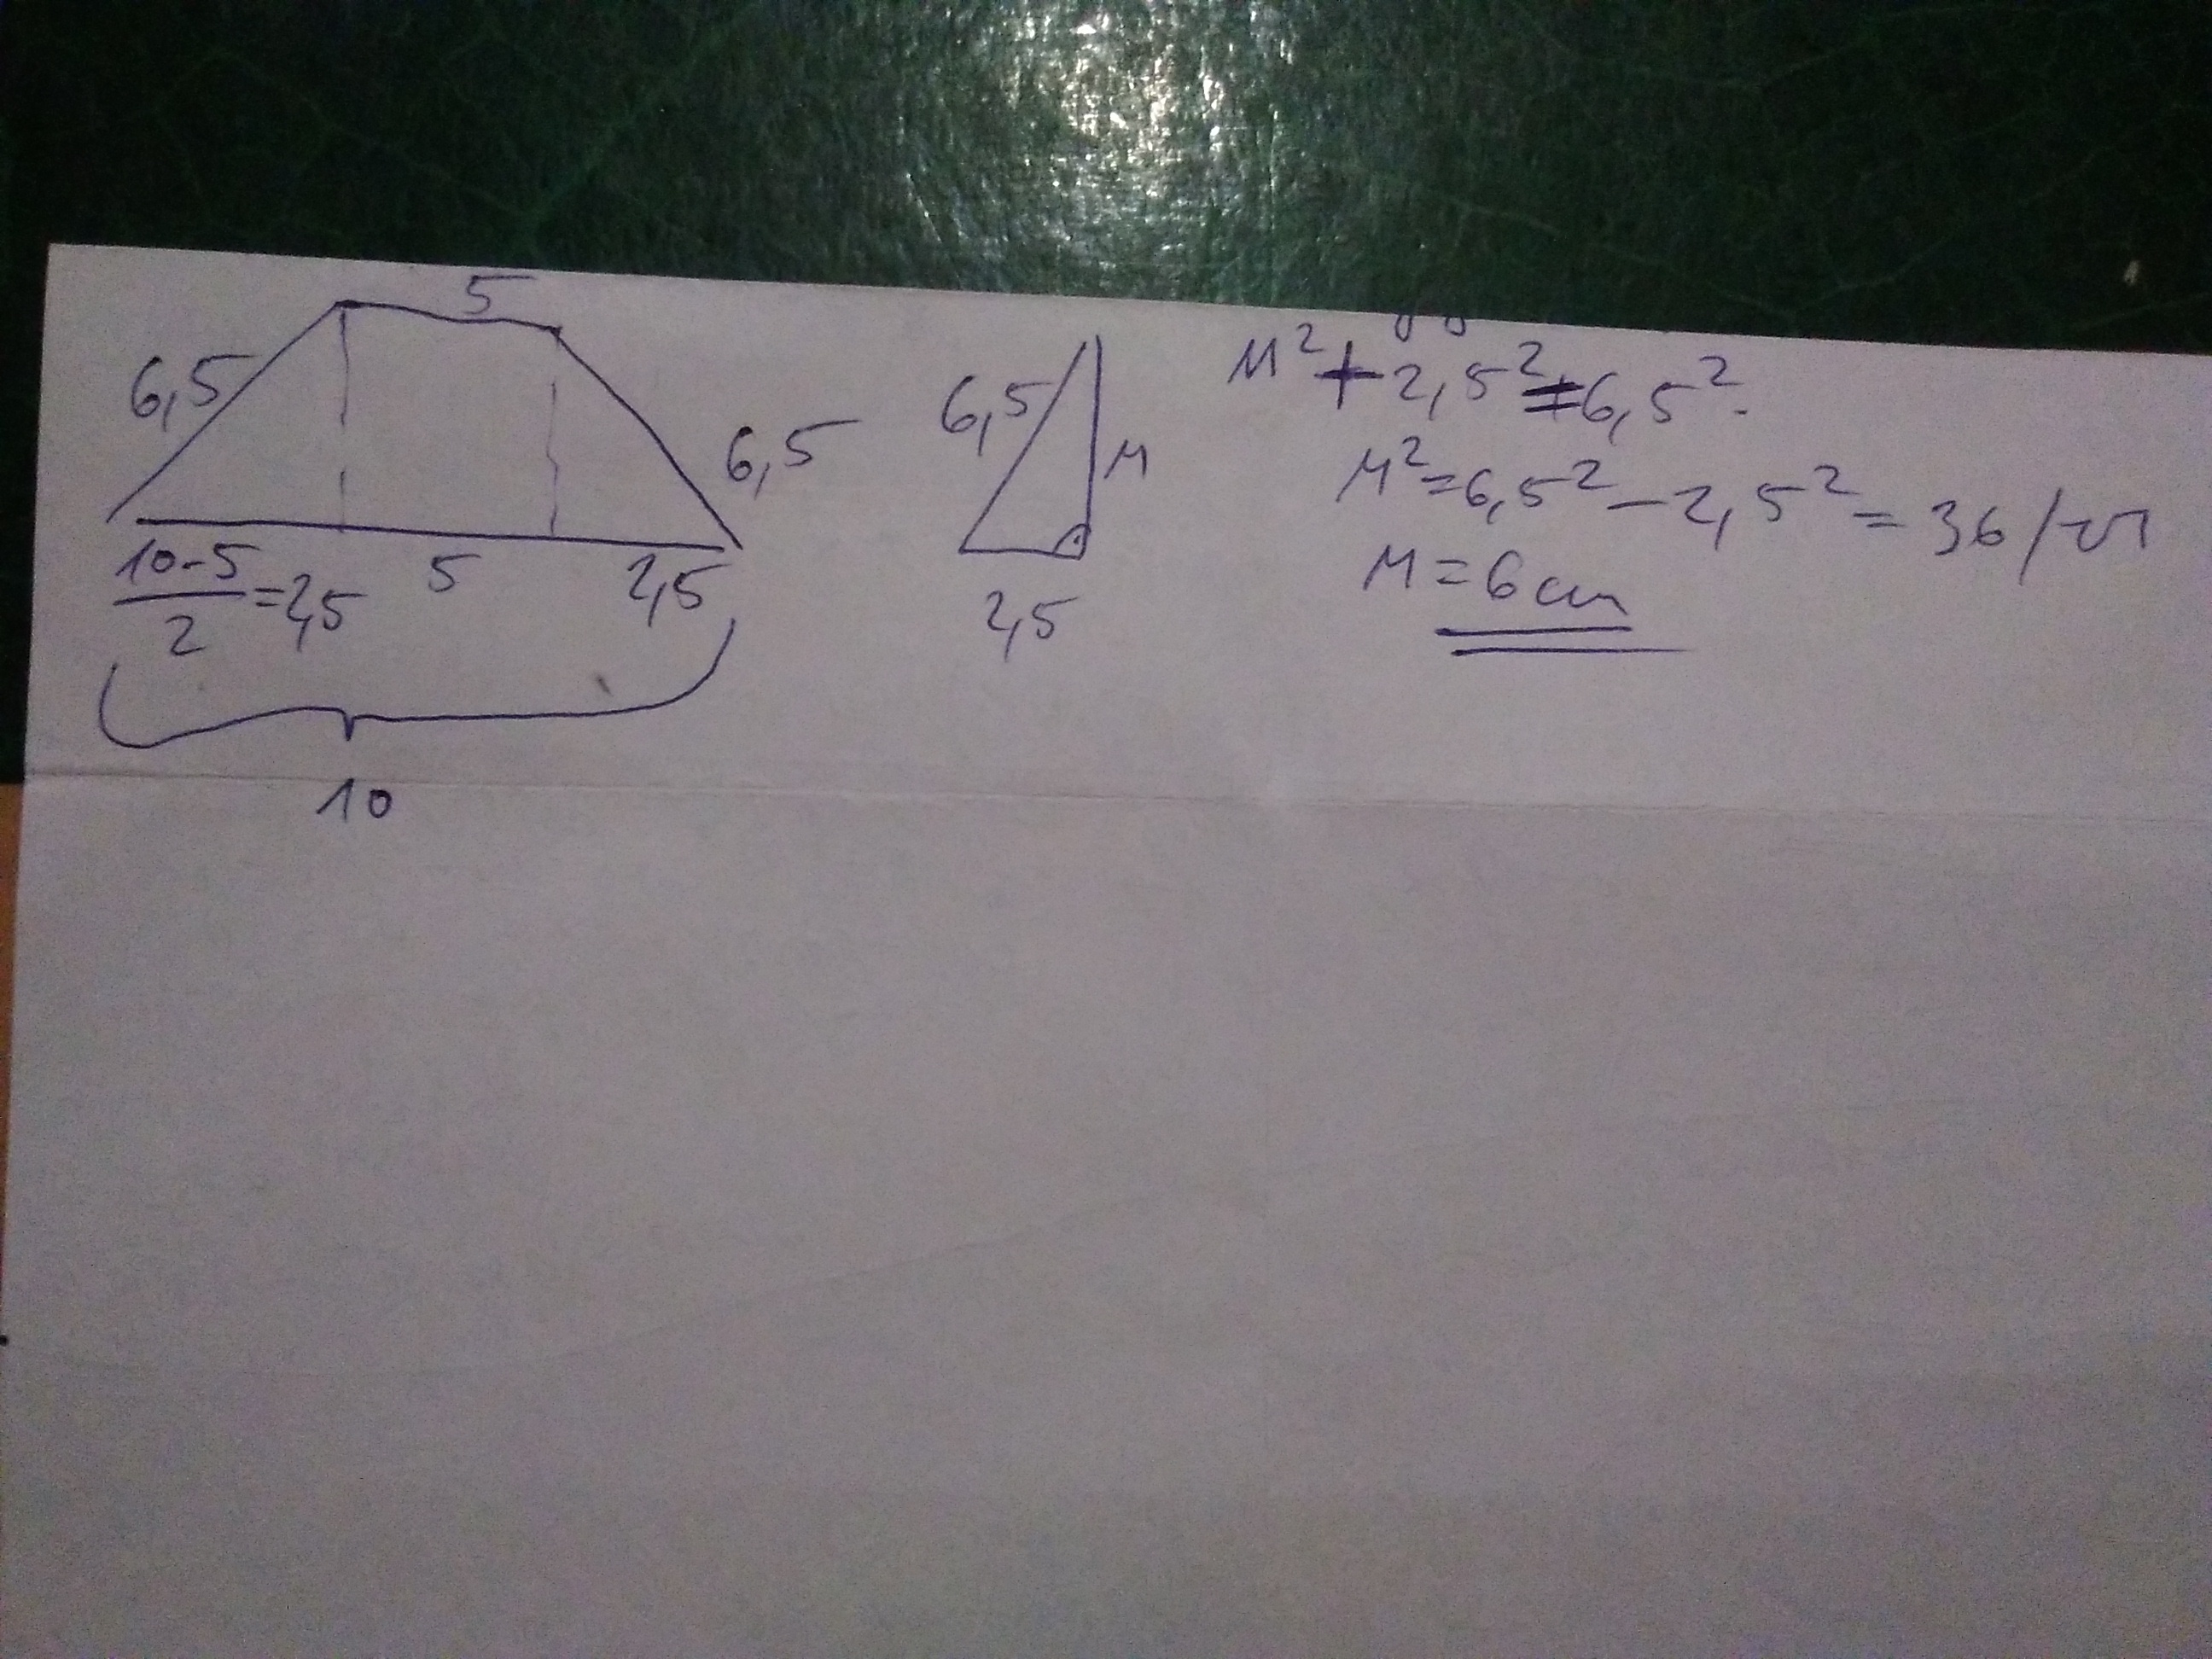 5
6,5
6,5
10-5
2
=2,5
5
2,5
10
6,5
M
2,5
M²+2,5²=6,5²
M²=6,5²-2,5²=36 /√
M=6 cm